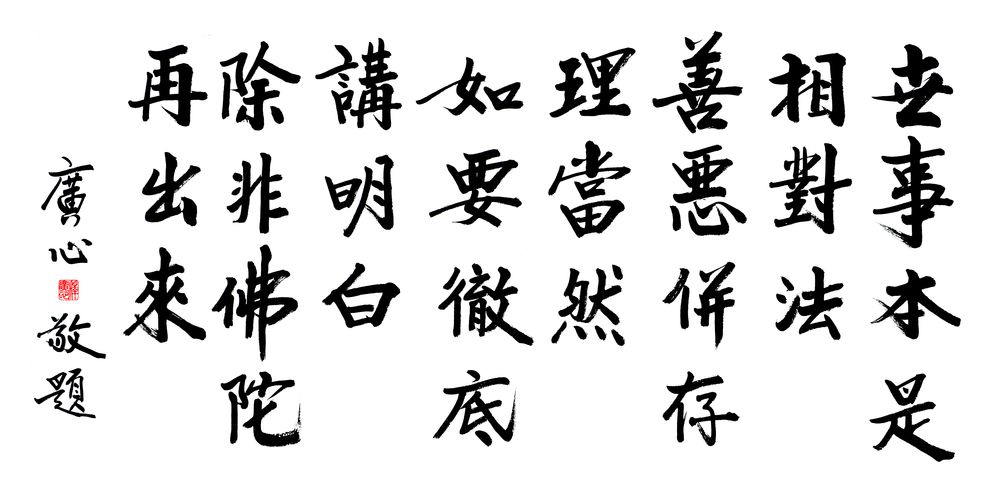 世事本是
相對法
善惡併存
理當然
如要徹底
講明白
除非佛陀
再出來
廣心
敬題